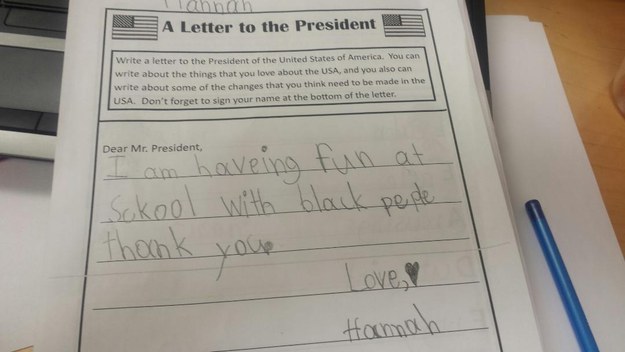 Hannah
A Letter to the President
Write a letter to the President of the United States of America. You can
write about the things that you love about the USA, and you also can
write about some of the changes that you think need to be made in the
USA. Don't forget to sign your name at the bottom of the letter.
Dear Mr. President,
I am haveing fun at
Sckool with black peple
thank you
Love,♥
Hannah